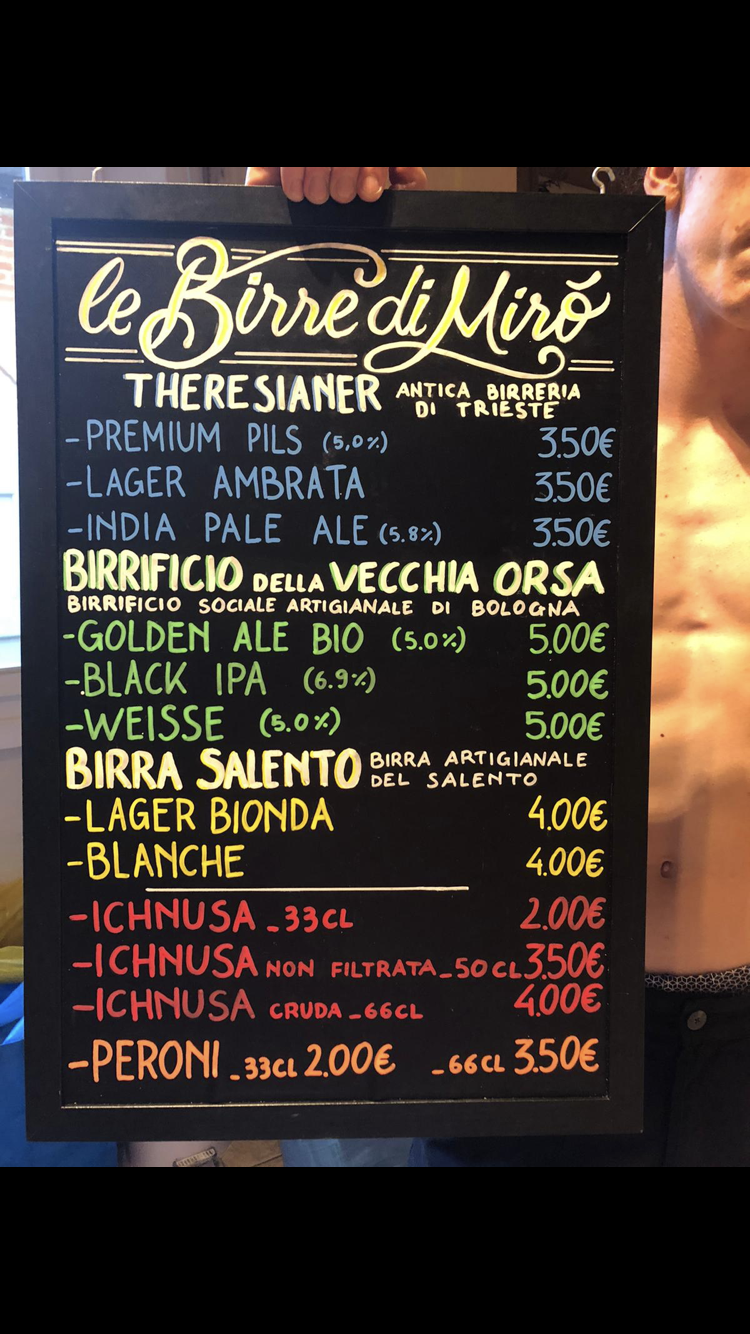 le Birre di Miró
THERESIANER ANTICA BIRRERIA
DI TRIESTE
-PREMIUM PILS (5,0%) 3.50€
-LAGER AMBRATA 3.50€
-INDIA PALE ALE (5.8%) 3.50€
BIRRIFICIO DELLA VECCHIA ORSA
BIRRIFICIO SOCIALE ARTIGIANALE DI BOLOGNA
-GOLDEN ALE BIO (5.0%) 5.00€
-BLACK IPA (6.9%) 5.00€
-WEISSE (5.0%) 5.00€
BIRRA SALENTO BIRRA ARTIGIANALE
DEL SALENTO
-LAGER BIONDA 4.00€
-BLANCHE 4.00€
-ICHNUSA _33CL 2.00€
-ICHNUSA NON FILTRATA_50CL 3.50€
-ICHNUSA CRUDA _66CL 4.00€
-PERONI _33CL 2.00€ _66CL 3.50€